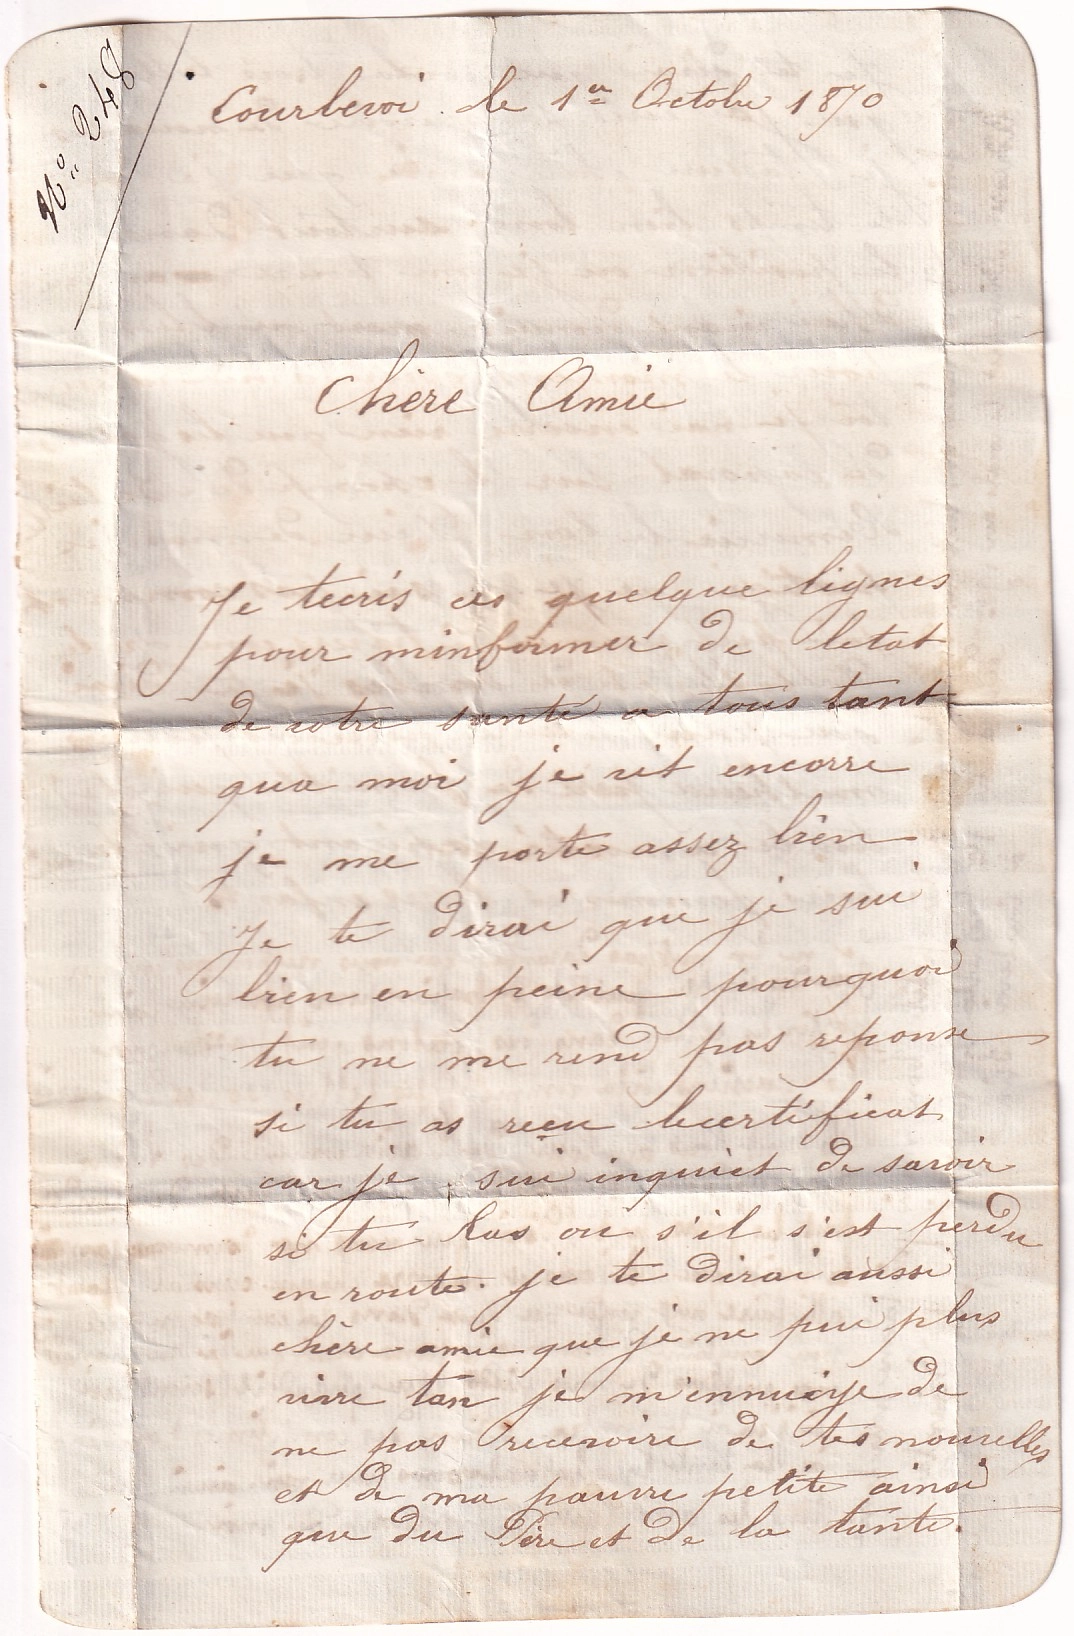 No. 248
Courbevoi le 1er Octobre 1870
Chère Amie
Je tecris ces quelque lignes
pour minformer de letat
de votre santé a tous tant
qua moi je vit encorre
je me porte assez bien
Je te dirai que je sui
bien en peine pourquoi
tu ne me rend pas reponse
si tu as reçu lecertificat
car je sui inquiet de savoir
si tu las ou s'il s'est perdu
en route. je te dirai aussi
chère amie que je ne pui plus
vivre tan je m'ennuiye de
ne pas recevoire de tes nouvelles
et de ma pauvre petite ainsi
que du Père et de la tante.